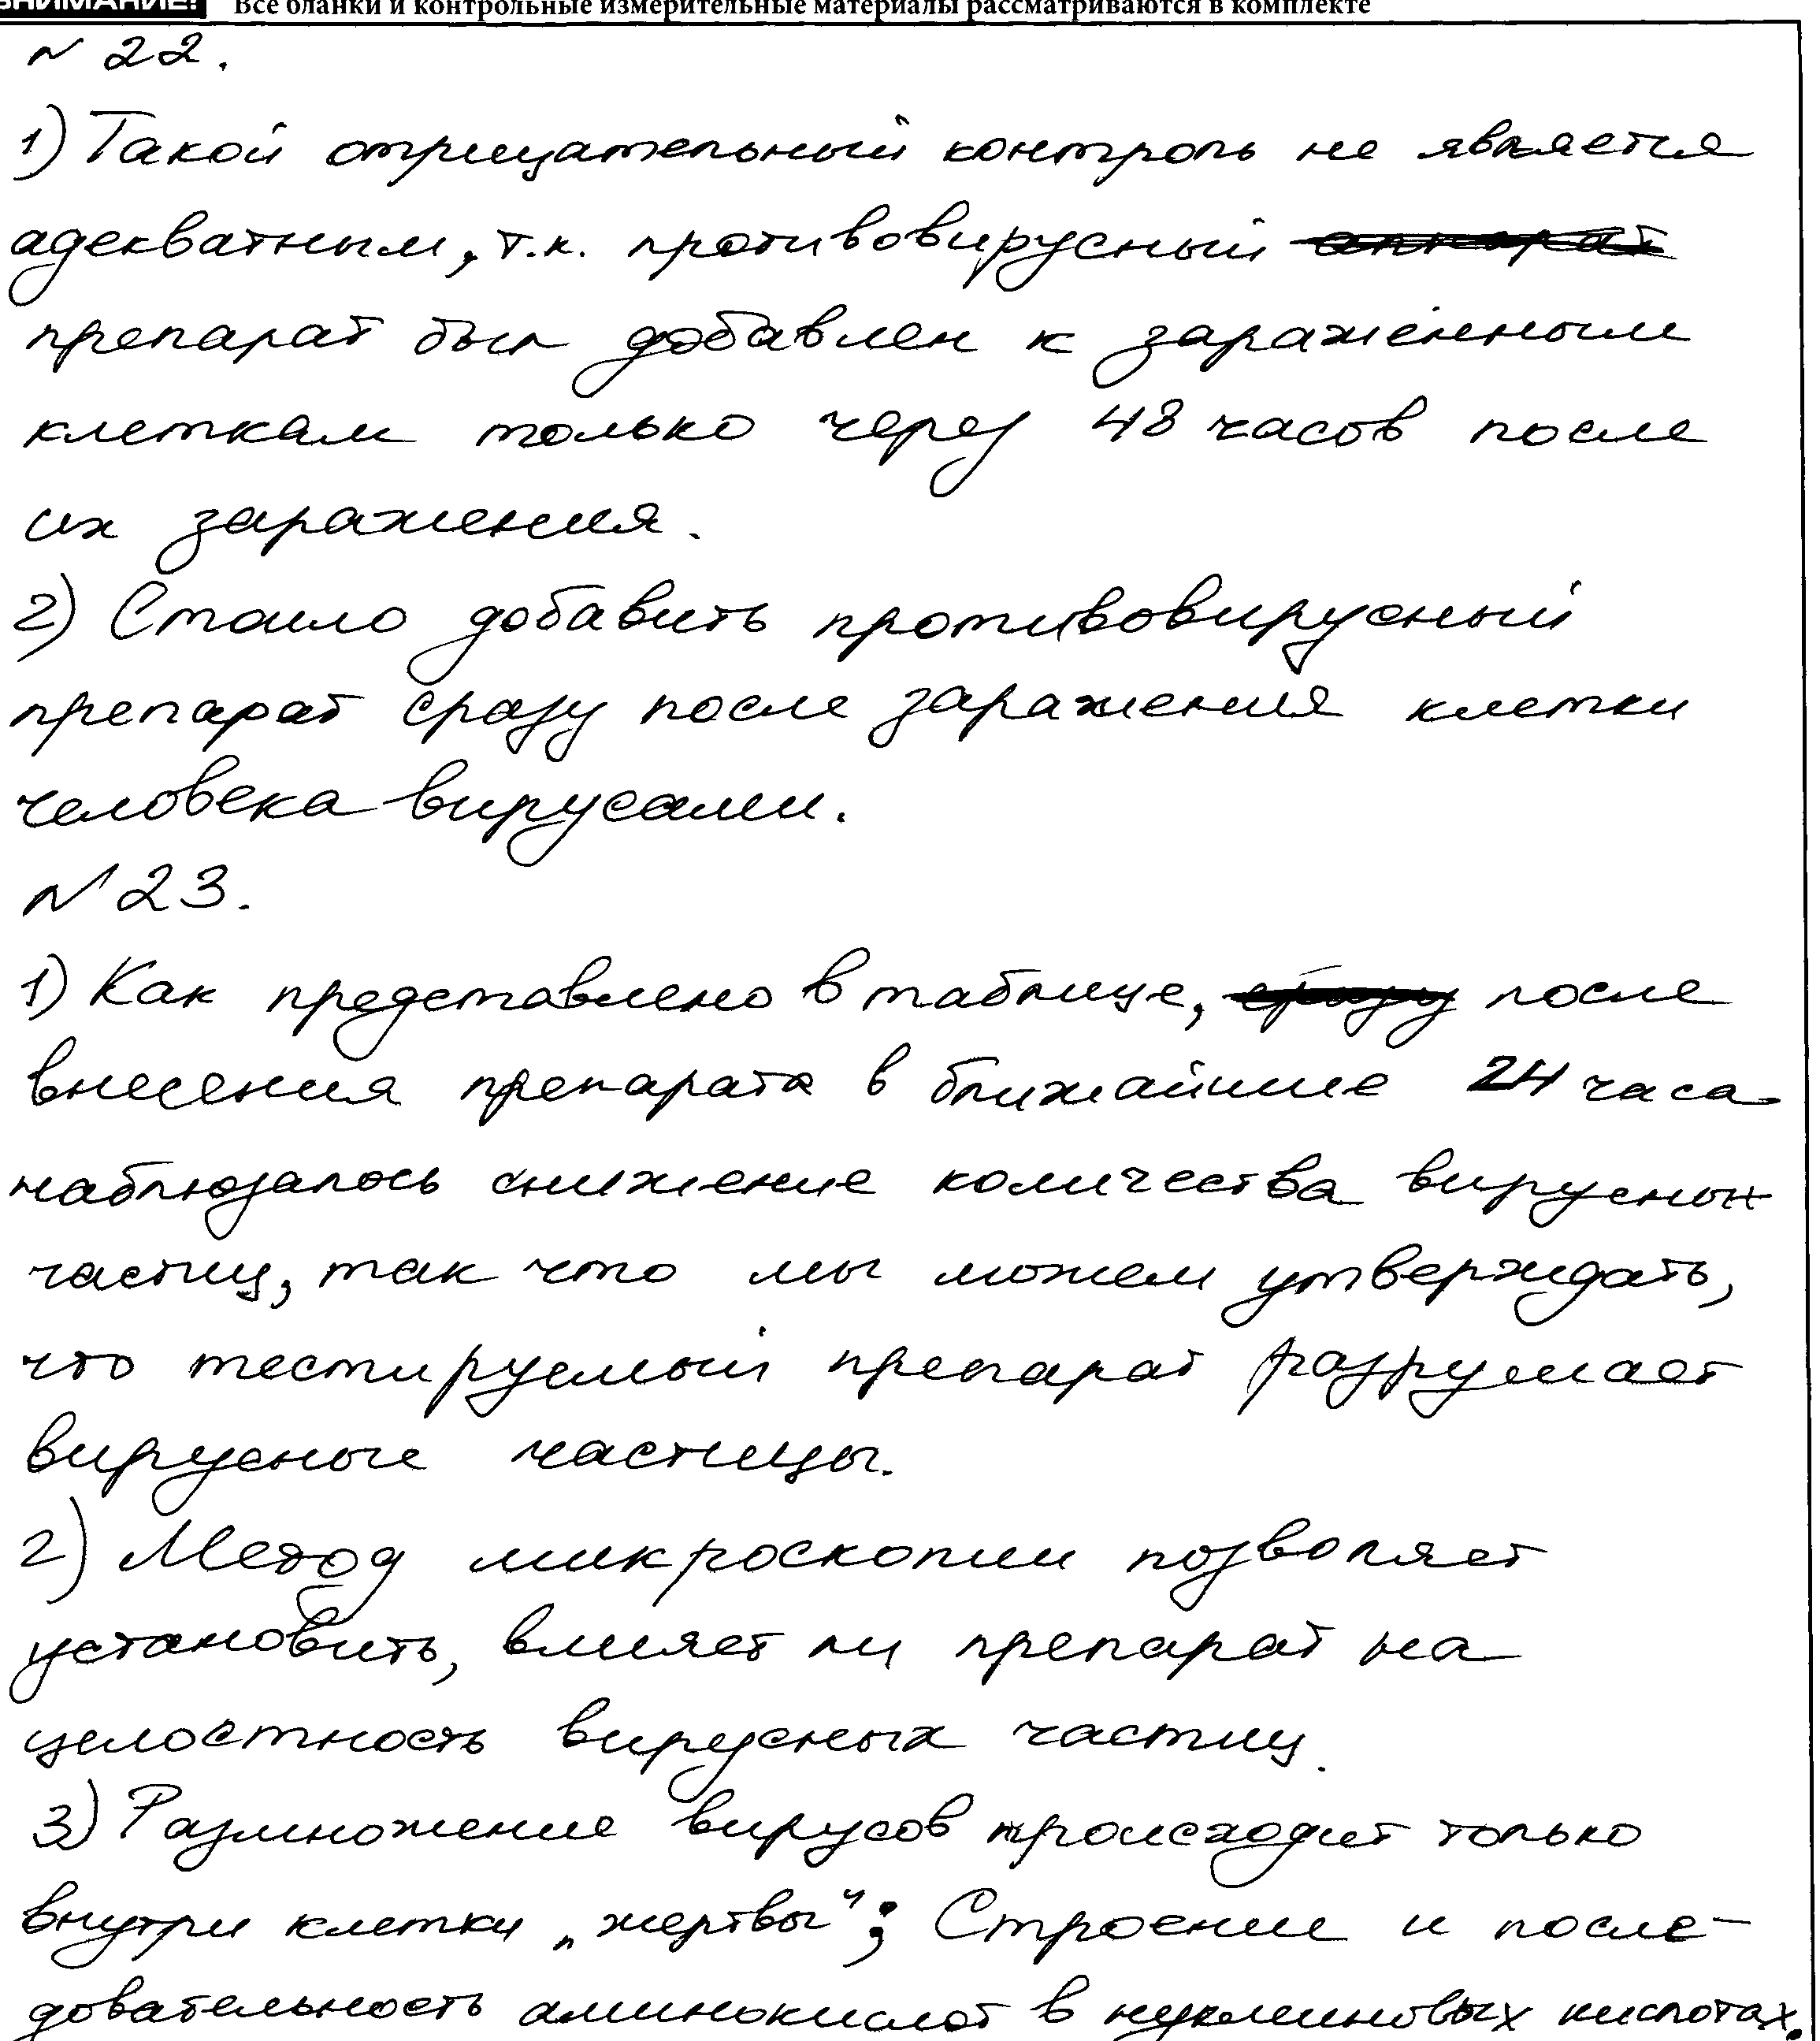 ВНИМАНИЕ! Все бланки и контрольные измерительные материалы рассматриваются в комплекте
N 22.
1) Такой отрицательный контроль не является
адекватным, т.к. противовирусный аппарат
препарат был добавлен к заражённым
клеткам только через 48 часов после
их заражения.
2) Стоило добавить противовирусный
препарат сразу после заражения клетки
человека вирусами.
N 23.
1) Как представлено в таблице, сразу после
внесения препарата в ближайшие 24 часа
наблюдалось снижение количества вирусных
частиц, так что мы можем утверждать,
что тестируемый препарат разрушает
вирусные частицы.
2) Метод микроскопии позволяет
установить, влияет ли препарат на
целостность вирусных частиц.
3) Размножение вирусов происходит только
внутри клетки „жертвы"; Строение и после-
довательность аминокислот в нуклеиновых кислотах.